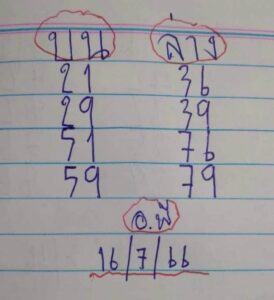 บน ล่าง
21 36
29 39
51 76
59 79
อ.พี
16/7/66